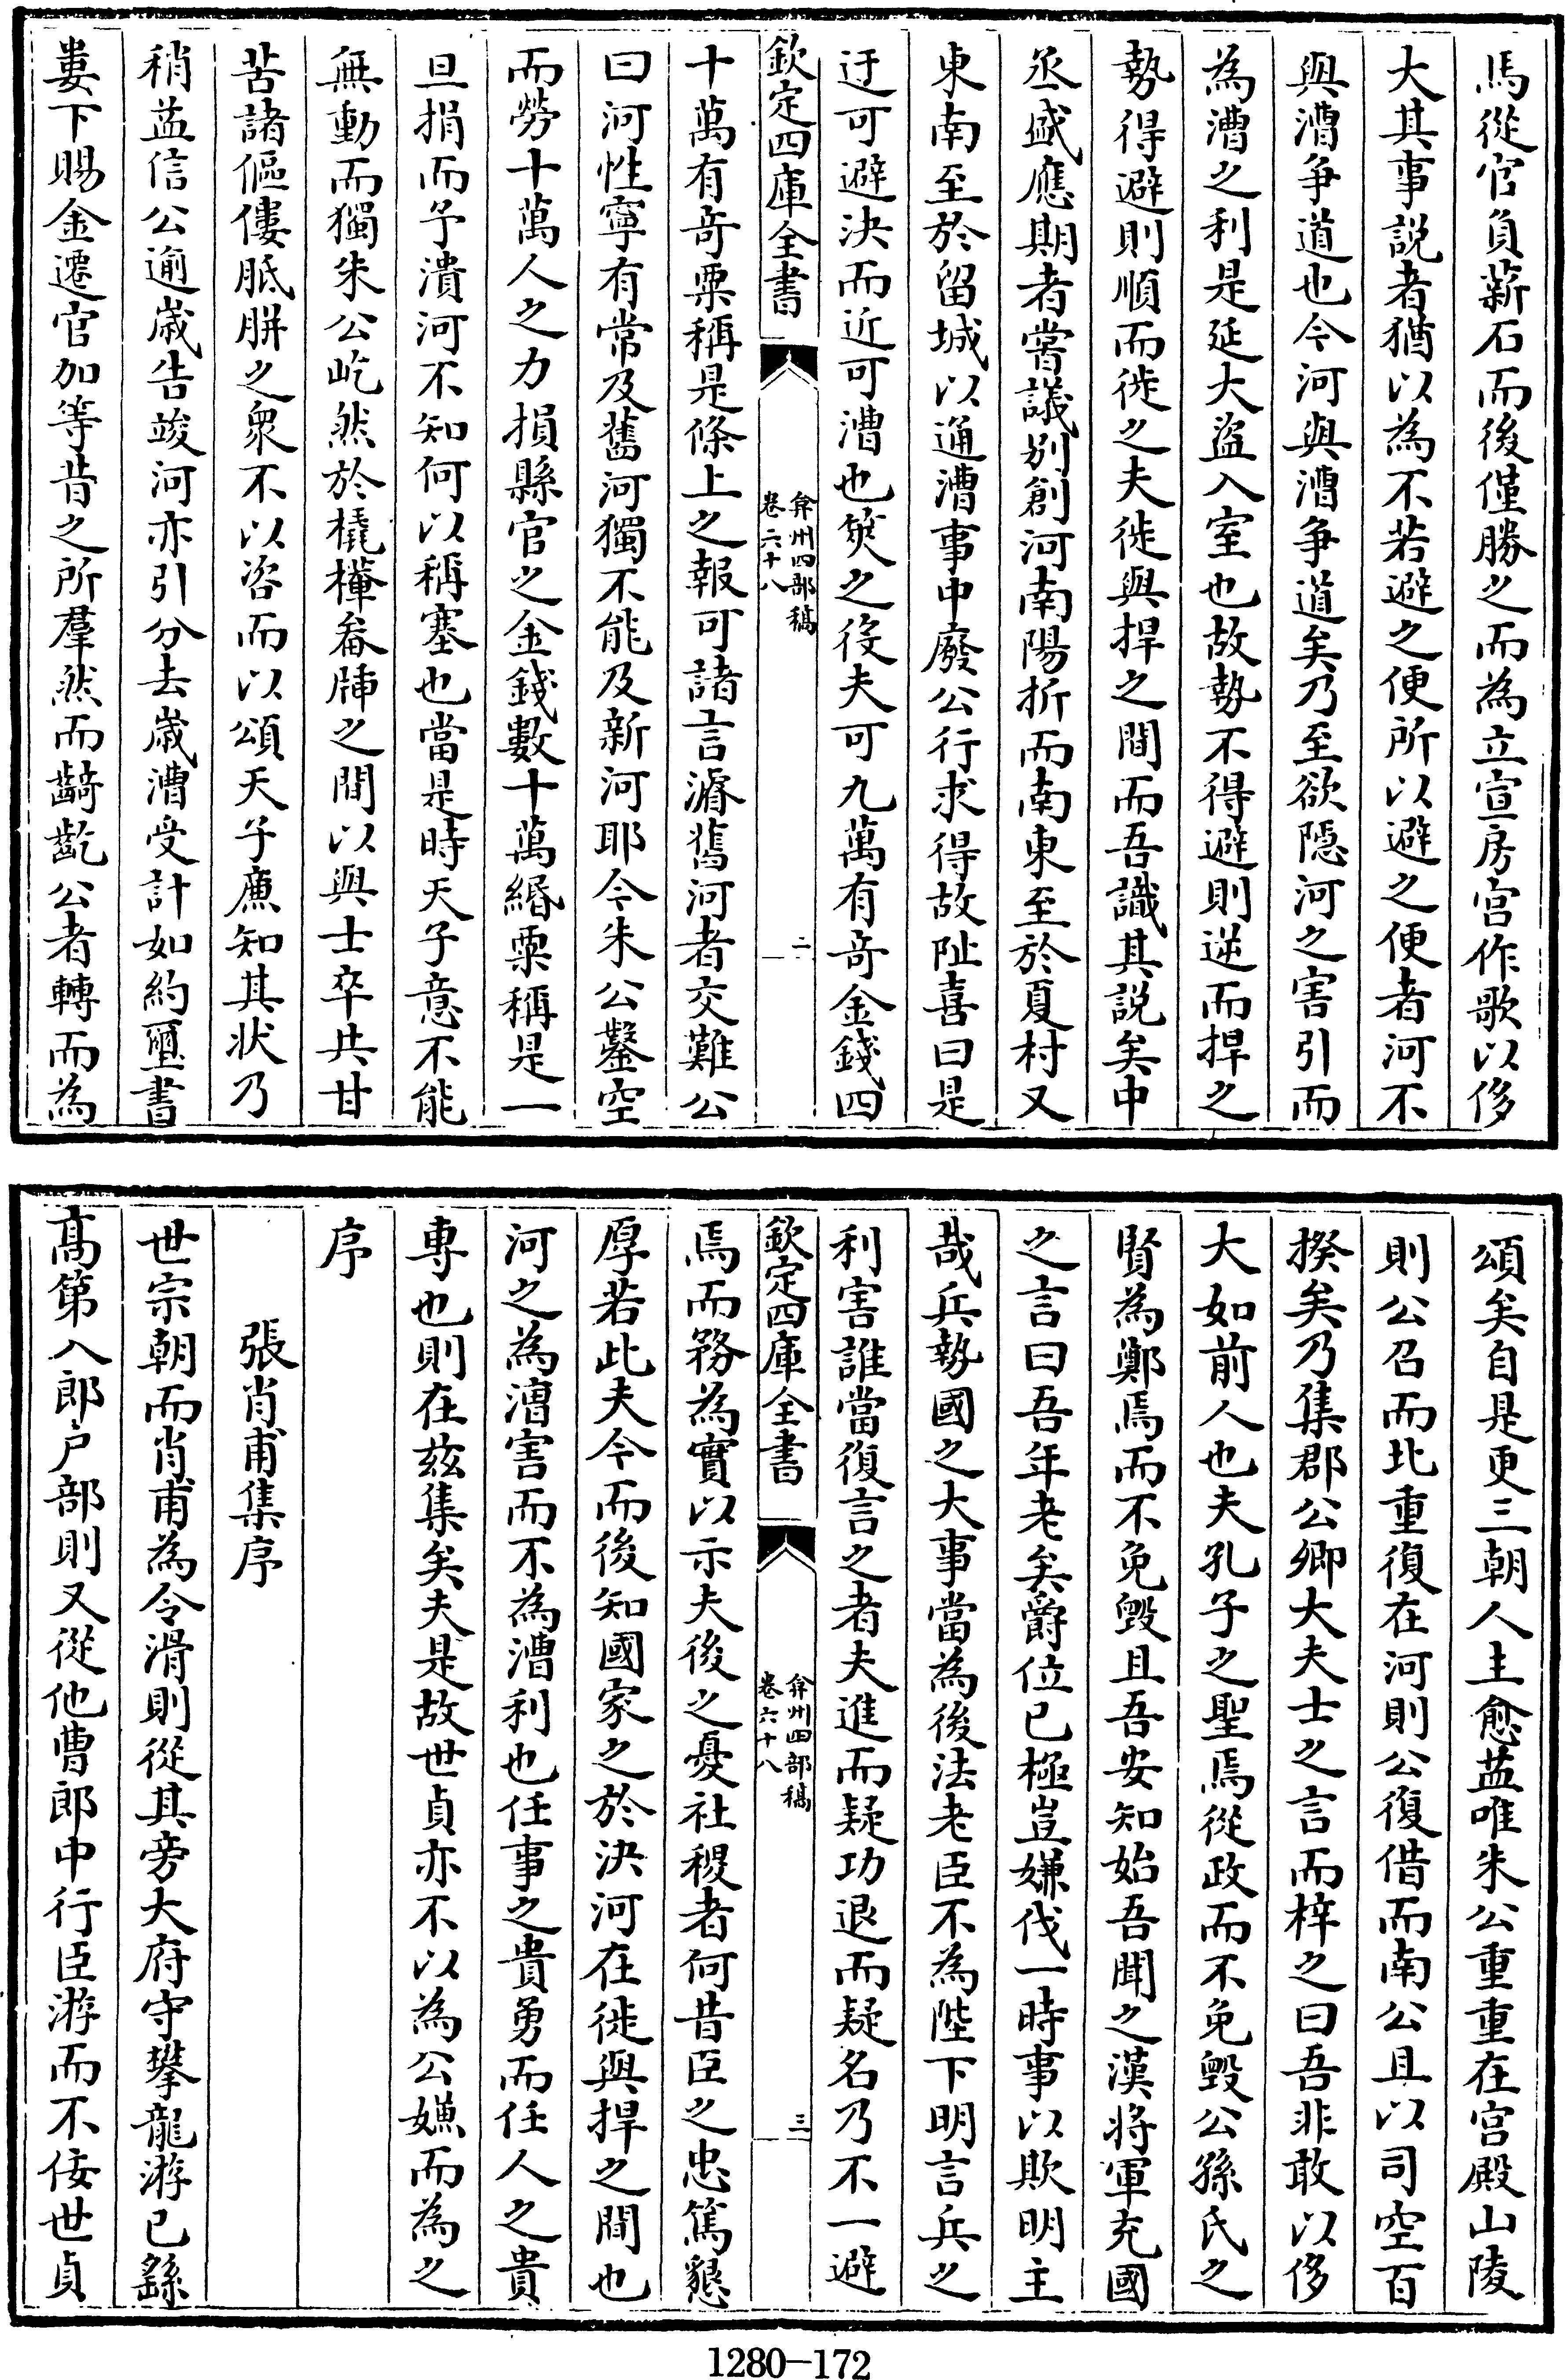 馬從官負薪石而後僅勝之而為立宣房宫作歌以侈
大其事説者猶以為不若避之便所以避之便者河不
與漕爭道也今河與漕爭道矣乃至欲隠河之害引而
為漕之利是延大盜入室也故勢不得避則逆而捍之
勢得避則順而徙之夫徙與捍之間而吾識其説矣中
丞盛應期者嘗議别創河南陽折而南東至於夏村又
東南至於留城以通漕事中廢公行求得故阯喜曰是
迂可避決而近可漕也筴之役夫可九萬有奇金錢四
欽定四庫全書
弇州四部稿
卷六十八
二
十萬有奇粟稱是條上之報可諸言濬舊河者交難公
曰河性寧有常及舊河獨不能及新河耶今朱公鑿空
而勞十萬人之力損縣官之金錢數十萬緡粟稱是一
旦捐而予潰河不知何以稱塞也當是時天子意不能
無動而獨朱公屹然於橇樺畚牐之間以與士卒共甘
苦諸傴僂胝胼之衆不以咨而以頌天子亷知其状乃
稍益信公逾嵗告竣河亦引分去嵗漕受計如約璽書
婁下賜金遷官加等昔之所羣然而齮齕公者轉而為
頌矣自是更三朝人主愈益唯朱公重重在宫殿山陵
則公召而北重復在河則公復借而南公且以司空百
揆矣乃集郡公卿大夫士之言而梓之曰吾非敢以侈
大如前人也夫孔子之聖焉從政而不免毀公孫氏之
賢為鄭焉而不免毀且吾安知始吾聞之漢將軍充國
之言曰吾年老矣爵位已極豈嫌伐一時事以欺明主
哉兵勢國之大事當為後法老臣不為陛下明言兵之
利害誰當復言之者夫進而疑功退而疑名乃不一避
欽定四庫全書
弇州四部稿
卷六十八
三
焉而務為實以示夫後之憂社稷者何昔臣之忠篤懇
厚若此夫今而後知國家之於決河在徙與捍之間也
河之為漕害而不為漕利也任事之貴勇而任人之貴
專也則在兹集矣夫是故世貞亦不以為公嫌而為之
序
張肖甫集序
世宗朝而肖甫為令滑則從其旁大府守攀龍游已繇
髙第入郎户部則又從他曹郎中行臣游而不佞世貞
1280—172